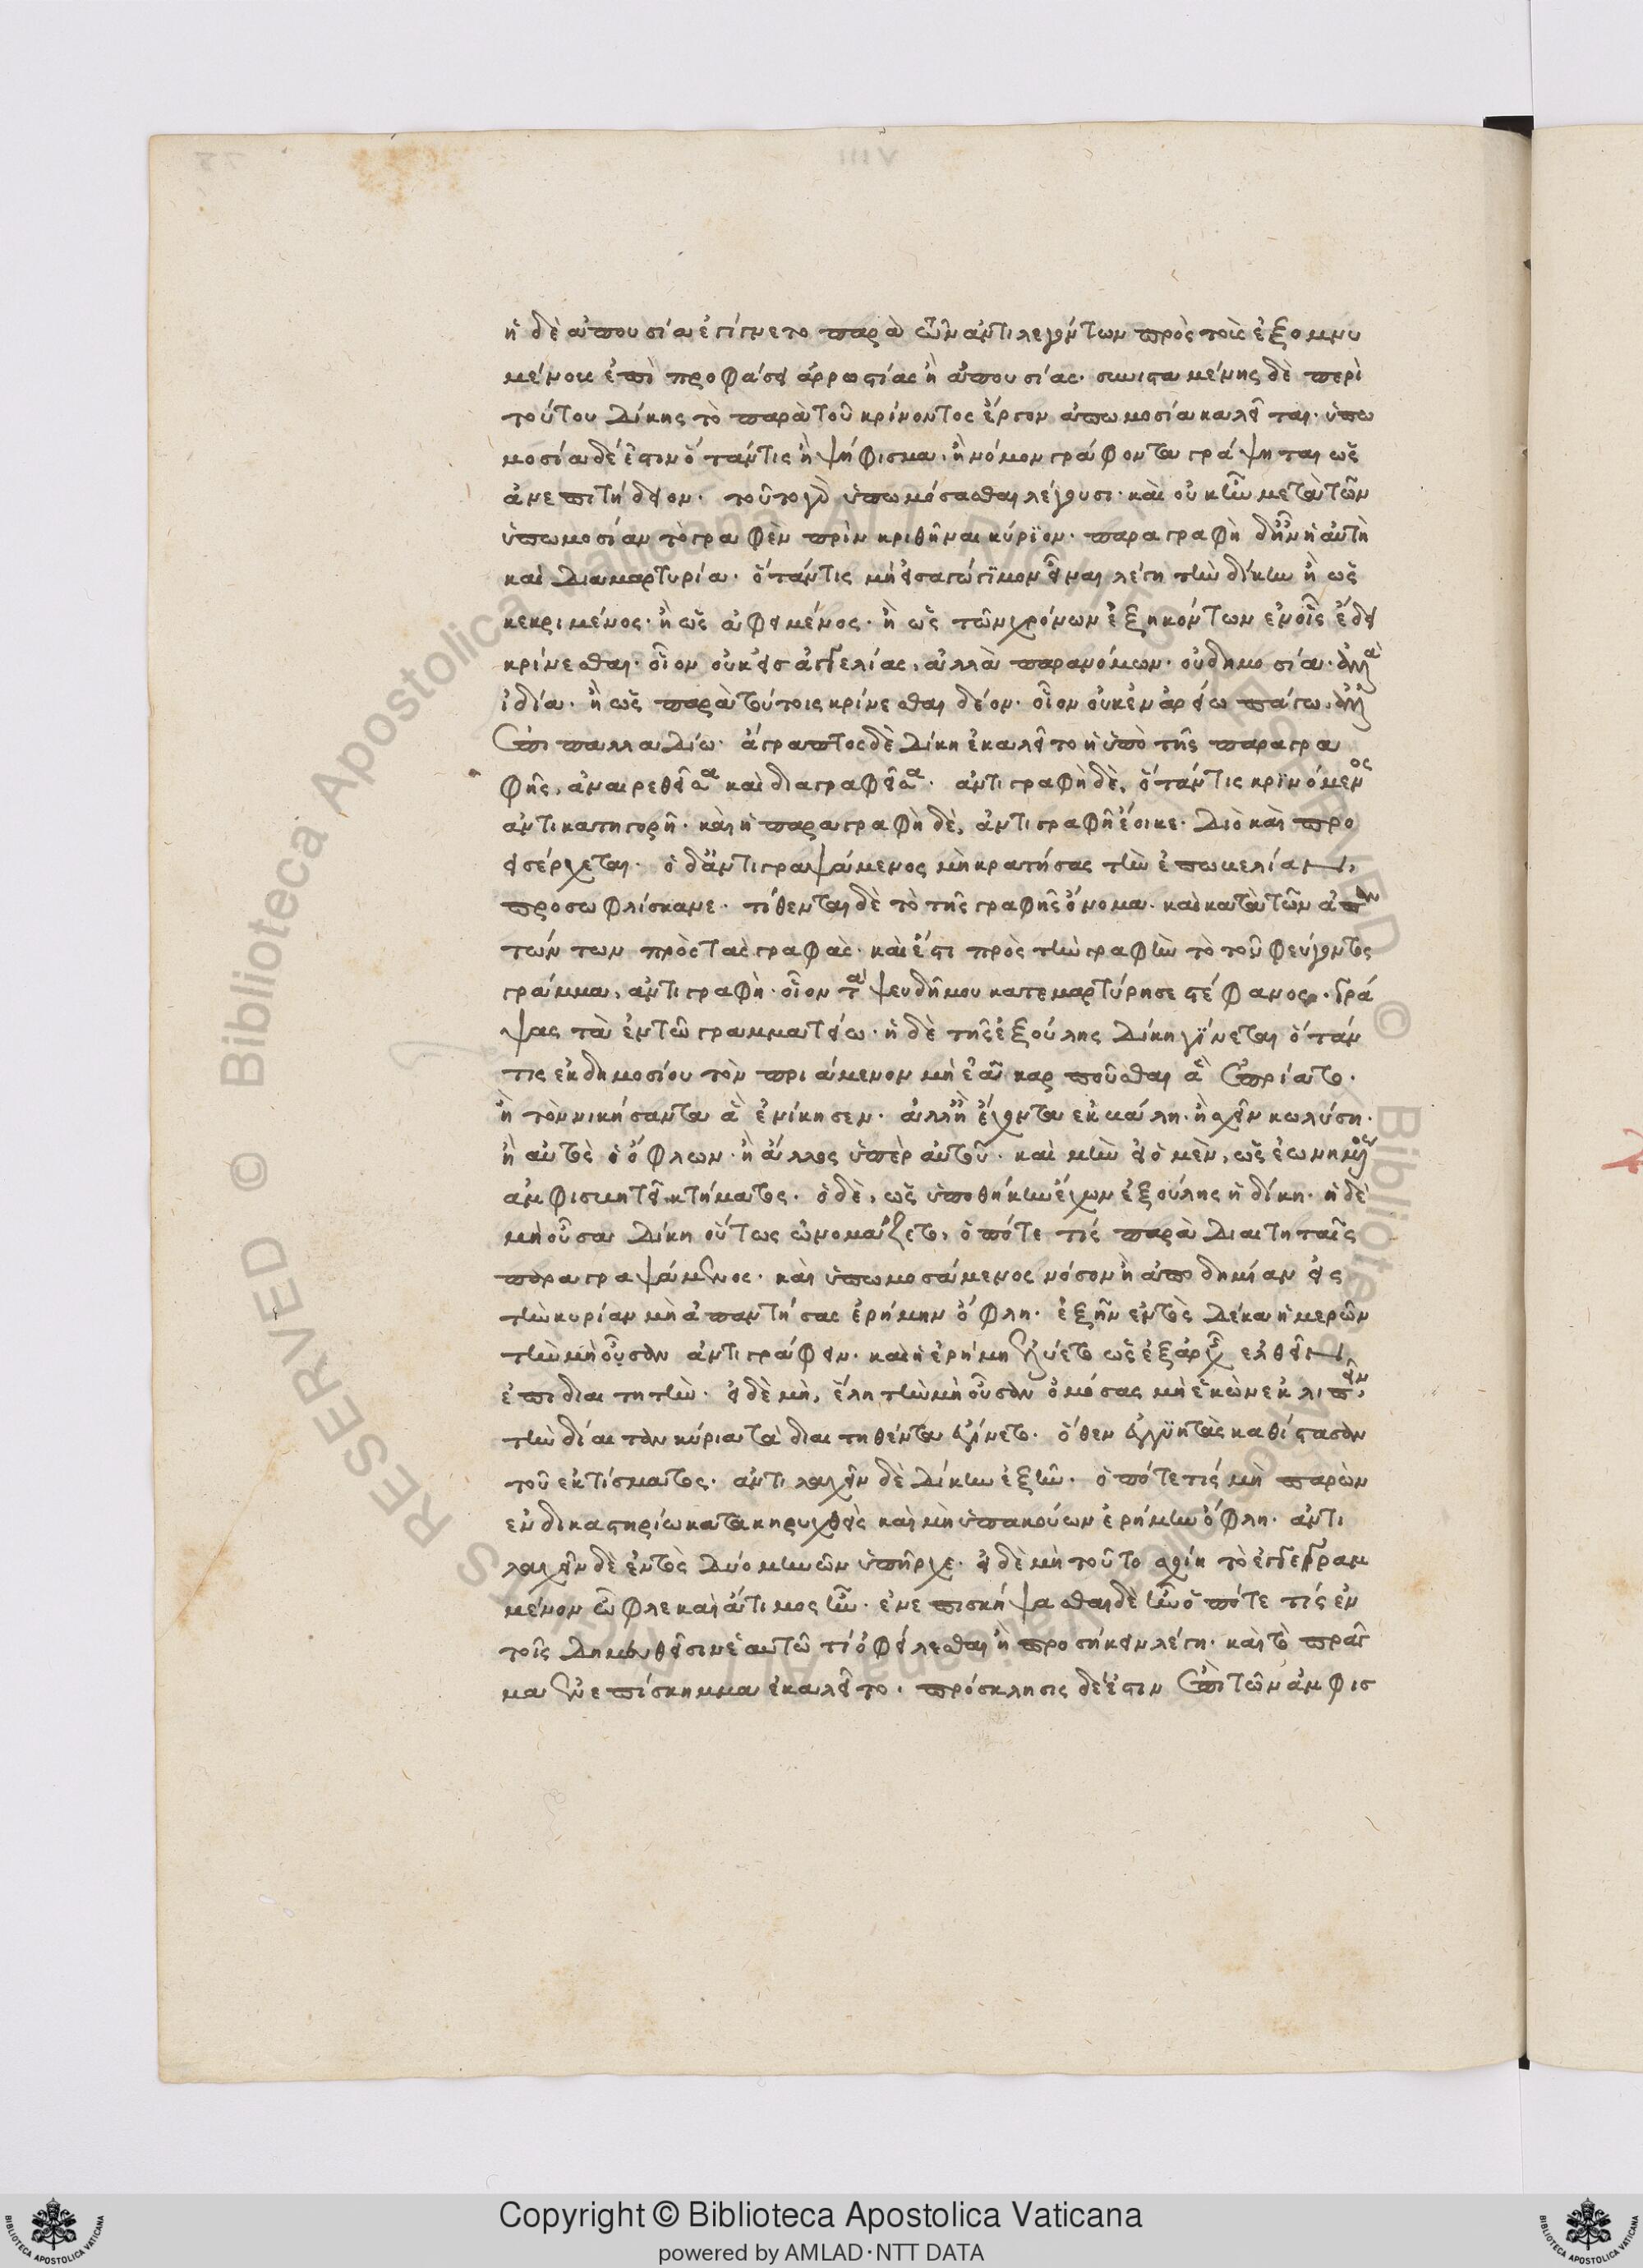 ἡ δὲ ἀπουσία ἐγίγνετο παρὰ τῶν ἀντιλεγόντων πρὸς τοὺς ἐξομνυ
μένους ἐπὶ προφάσει ἀρρωστίας ἢ ἀπουσίας. συνισταμένης δὲ περὶ
τούτου δίκης τὸ παρὰ τοῦ κρίνοντος ἔργον ἀπωμοσία καλεῖται. ὑπω
μοσία δέ ἐστιν ὅταν τις ἢ ψήφισμα, ἢ νόμον γράφοντα γράψηται ὡς
ἀνεπιτήδειον. τοῦτο γὰρ ὑπωμόσασθαι λέγουσι. καὶ οὐκ ἦν μετὰ τὴν
ὑπωμοσίαν τὸ γραφὲν πρὶν κριθῆναι κύριον. παραγραφὴ δ' ἦν ἡ αὐτὴ
καὶ διαμαρτυρία. ὅταν τις μὴ εἰσαγώγιμον εἶναι λέγη τὴν δίκην ἢ ὡς
κεκριμένος. ἢ ὡς ἀφειμένος. ἢ ὡς τῶν χρόνων ἐξηκόντων ἐν οἷς ἔδει
κρίνεσθαι. οἷον οὐκ εἰσαγγελίας, ἀλλὰ παρανόμων. οὐ δημοσία. ἀλλὰ
ἰδία. ἢ ὡς παρὰ τούτοις κρίνεσθαι δέον. οἷον οὐκ ἐν ἀρείω πάγω, ἀλλ'
ἐπὶ παλλαδίω. ἄγραπτος δὲ δίκη ἐκαλεῖτο ἡ ὑπὸ τῆς παραγρα
φῆς, ἀναιρεθεῖσα καὶ διαγραφεῖσα. ἀντιγραφὴ δὲ, ὅταν τις κρινόμενος
ἀντικατηγορῆ. καὶ ἡ παραγραφὴ δὲ, ἀντιγραφῆ ἔοικε. διὸ καὶ προ
εισέρχεται. ὁ δ' ἀντιγραψάμενος μὴ κρατήσας τὴν ἐπωβελίαν,
προσωφλίσκανε. τίθενται δὲ τὸ τῆς γραφῆς ὄνομα. καὶ κατὰ τῶν ἀπαν
τώντων πρὸς τὰς γραφάς. καὶ ἔστι πρὸς τὴν γραφὴν τὸ τοῦ φεύγοντος
γράμμα, ἀντιγραφή. οἷον τὰ ψευδῆ μου κατεμαρτύρησε στέφανος. γρά
ψας τὰ ἐν τῶ γραμματείω. ἡ δὲ τῆς ἐξούλης δίκη γίνεται ὅταν
τις ἐκ δημοσίου τὸν πριάμενον μὴ ἐᾶ καρποῦσθαι ἃ ἐπρίατο.
ἢ τὸν νικήσαντα ἃ ἐνίκησεν. ἀλλ' ἢ ἔχοντα ἐκβάλη. ἢ σχεῖν κωλύση.
ἢ αὐτὸς ὁ ὄφλων. ἢ ἄλλος ὑπὲρ αὐτοῦ. καὶ μὴν εἰ ὁ μὲν, ὡς ἐωνημένος
ἀμφισβητεῖ κτήματος. ὁ δὲ, ὡς ὑποθήκην ἔχων ἐξούλης ἡ δίκη. ἡ δὲ
μὴ οὖσα δίκη οὕτως ὠνομάζετο, ὁπότε τίς παρὰ διαιτηταῖς
παραγραψάμενος. καὶ ὑπωμοσάμενος νόσον ἢ ἀποδημίαν εἰς
τὴν κυρίαν μὴ ἀπαντήσας ἐρήμην ὄφλη. ἐξῆν ἐντὸς δέκα ἡμερῶν
τὴν μὴ οὖσαν ἀντιγράφειν. καὶ ἡ ἐρήμη ἐλύετο ὡς ἐξ ἀρχῆς ἐλθεῖν,
ἐπὶ διαιτητήν. εἰ δὲ μὴ, ἕλη τὴν μὴ οὖσαν ὀμόσας μὴ ἑκὼν ἐκλιπεῖν,
τὴν δίαιταν κύρια τὰ διαιτηθέντα ἐγίνετο. ὅθεν ἐγγυητὰς καθίστασαν
τοῦ ἐκτίσματος. ἀντιλαχεῖν δὲ δίκην ἐξῆν. ὁπότε τίς μὴ παρὼν
ἐν δικαστηρίω κατακηρυχθεὶς καὶ μὴ ὑπακούων ἐρήμην ὄφλη. ἀντι
λαχεῖν δὲ ἐντὸς δύο μηνῶν ὑπῆρχε. εἰ δὲ μὴ τοῦτο σχοίη τὸ ἐγγεγραμ
μένον ὦφλε καὶ ἄτιμος ἦν. ἐνεπισκήψασθαι δὲ ἦν ὁπότε τίς ἐν
τοῖς δημευθεῖσιν ἑαυτῶ τί ὀφείλεσθαι ἢ προσήκειν λέγη. καὶ τὸ πρᾶγ
μα ἐνεπίσκημμα ἐκαλεῖτο. πρόσκλησις δέ ἐστιν ἐπὶ τῶν ἀμφισ
Copyright © Biblioteca Apostolica Vaticana
powered by AMLAD·NTT DATA